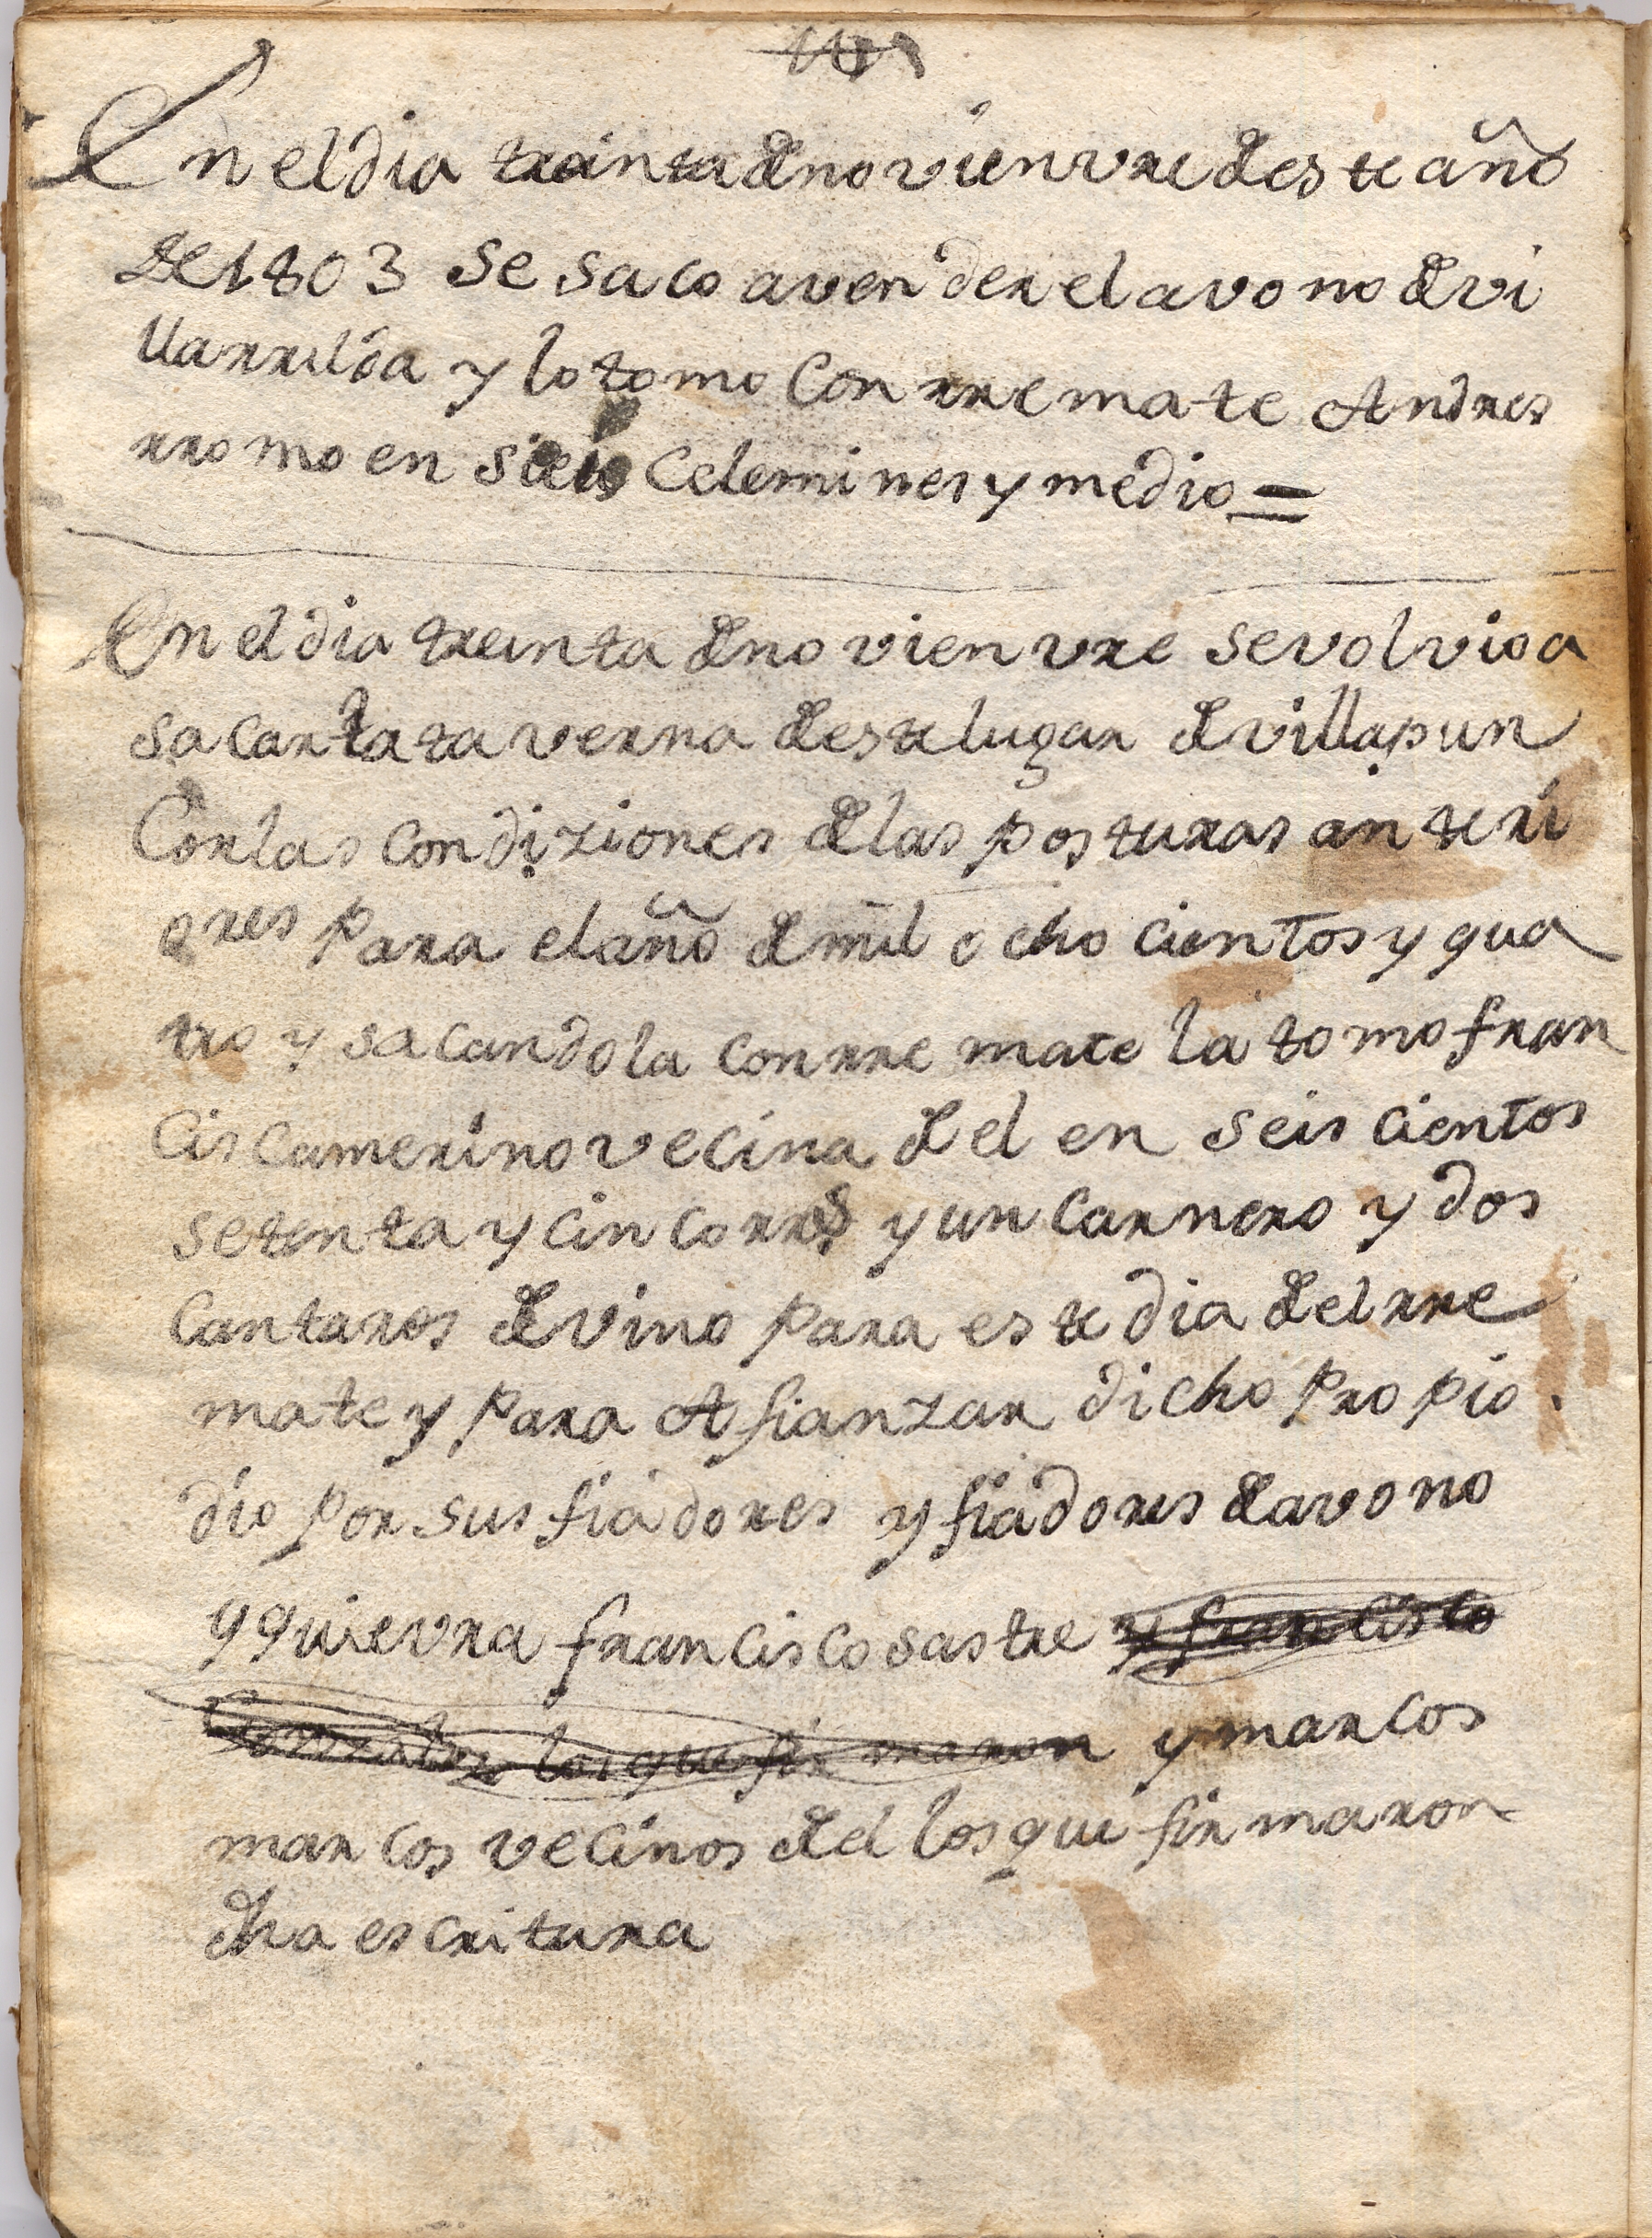 En el dia treinta de novienvre de este año
de 1803 se saco a vender el avono de vi
llarrilda y lo tomo con rremate Andres
rromo en seis celemines y medio =
En el dia treinta de novienvre se volvio a
sacar la taverna de este lugar de villapun
Con las condiziones de las posturas anteri
ores para el año de mil ocho cientos y qua
tro y sacandola con rremate la tomo fran
cisca merino vecina de el en seis cientos
setenta y cinco rrs y un carnero y dos
cantaros de vino para este dia del rre
mate y para Afianzar dicho propio
dio por sus fiadores y fiadores de avono
y quievra francisco sastre y francisco
Gonzalez los que firmaron y marcos
marcos vecinos de el los que firmaron
dha escritura